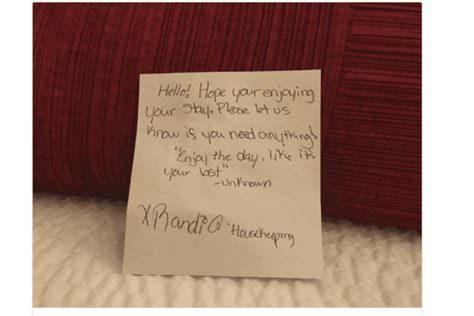 Hello! Hope your enjoying
your stay. Please let us
know if you need anything!
"Enjoy the day, like it's
your last"
-unknown
X Randi G. Housekeeping